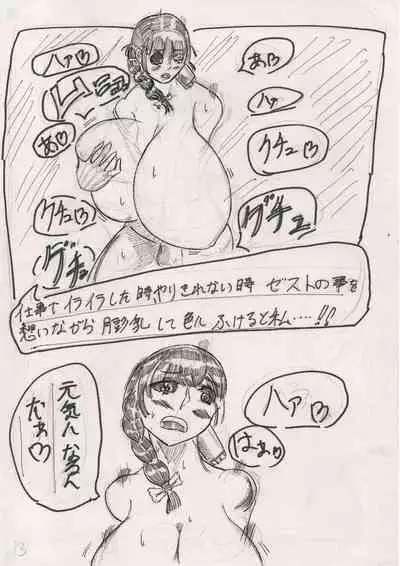 あ♡
ハァ♡
ハァ
ムニュ
あ♡
クチュ♡
クチュ♡
グチュ
グチュ
仕事でイライラした時やりきれない時 ゼストの事を
想いながら 膨乳 して色ル ふけると私……!!
ハァ♡
はぁ♡
元気になるん
だぁ♡
13